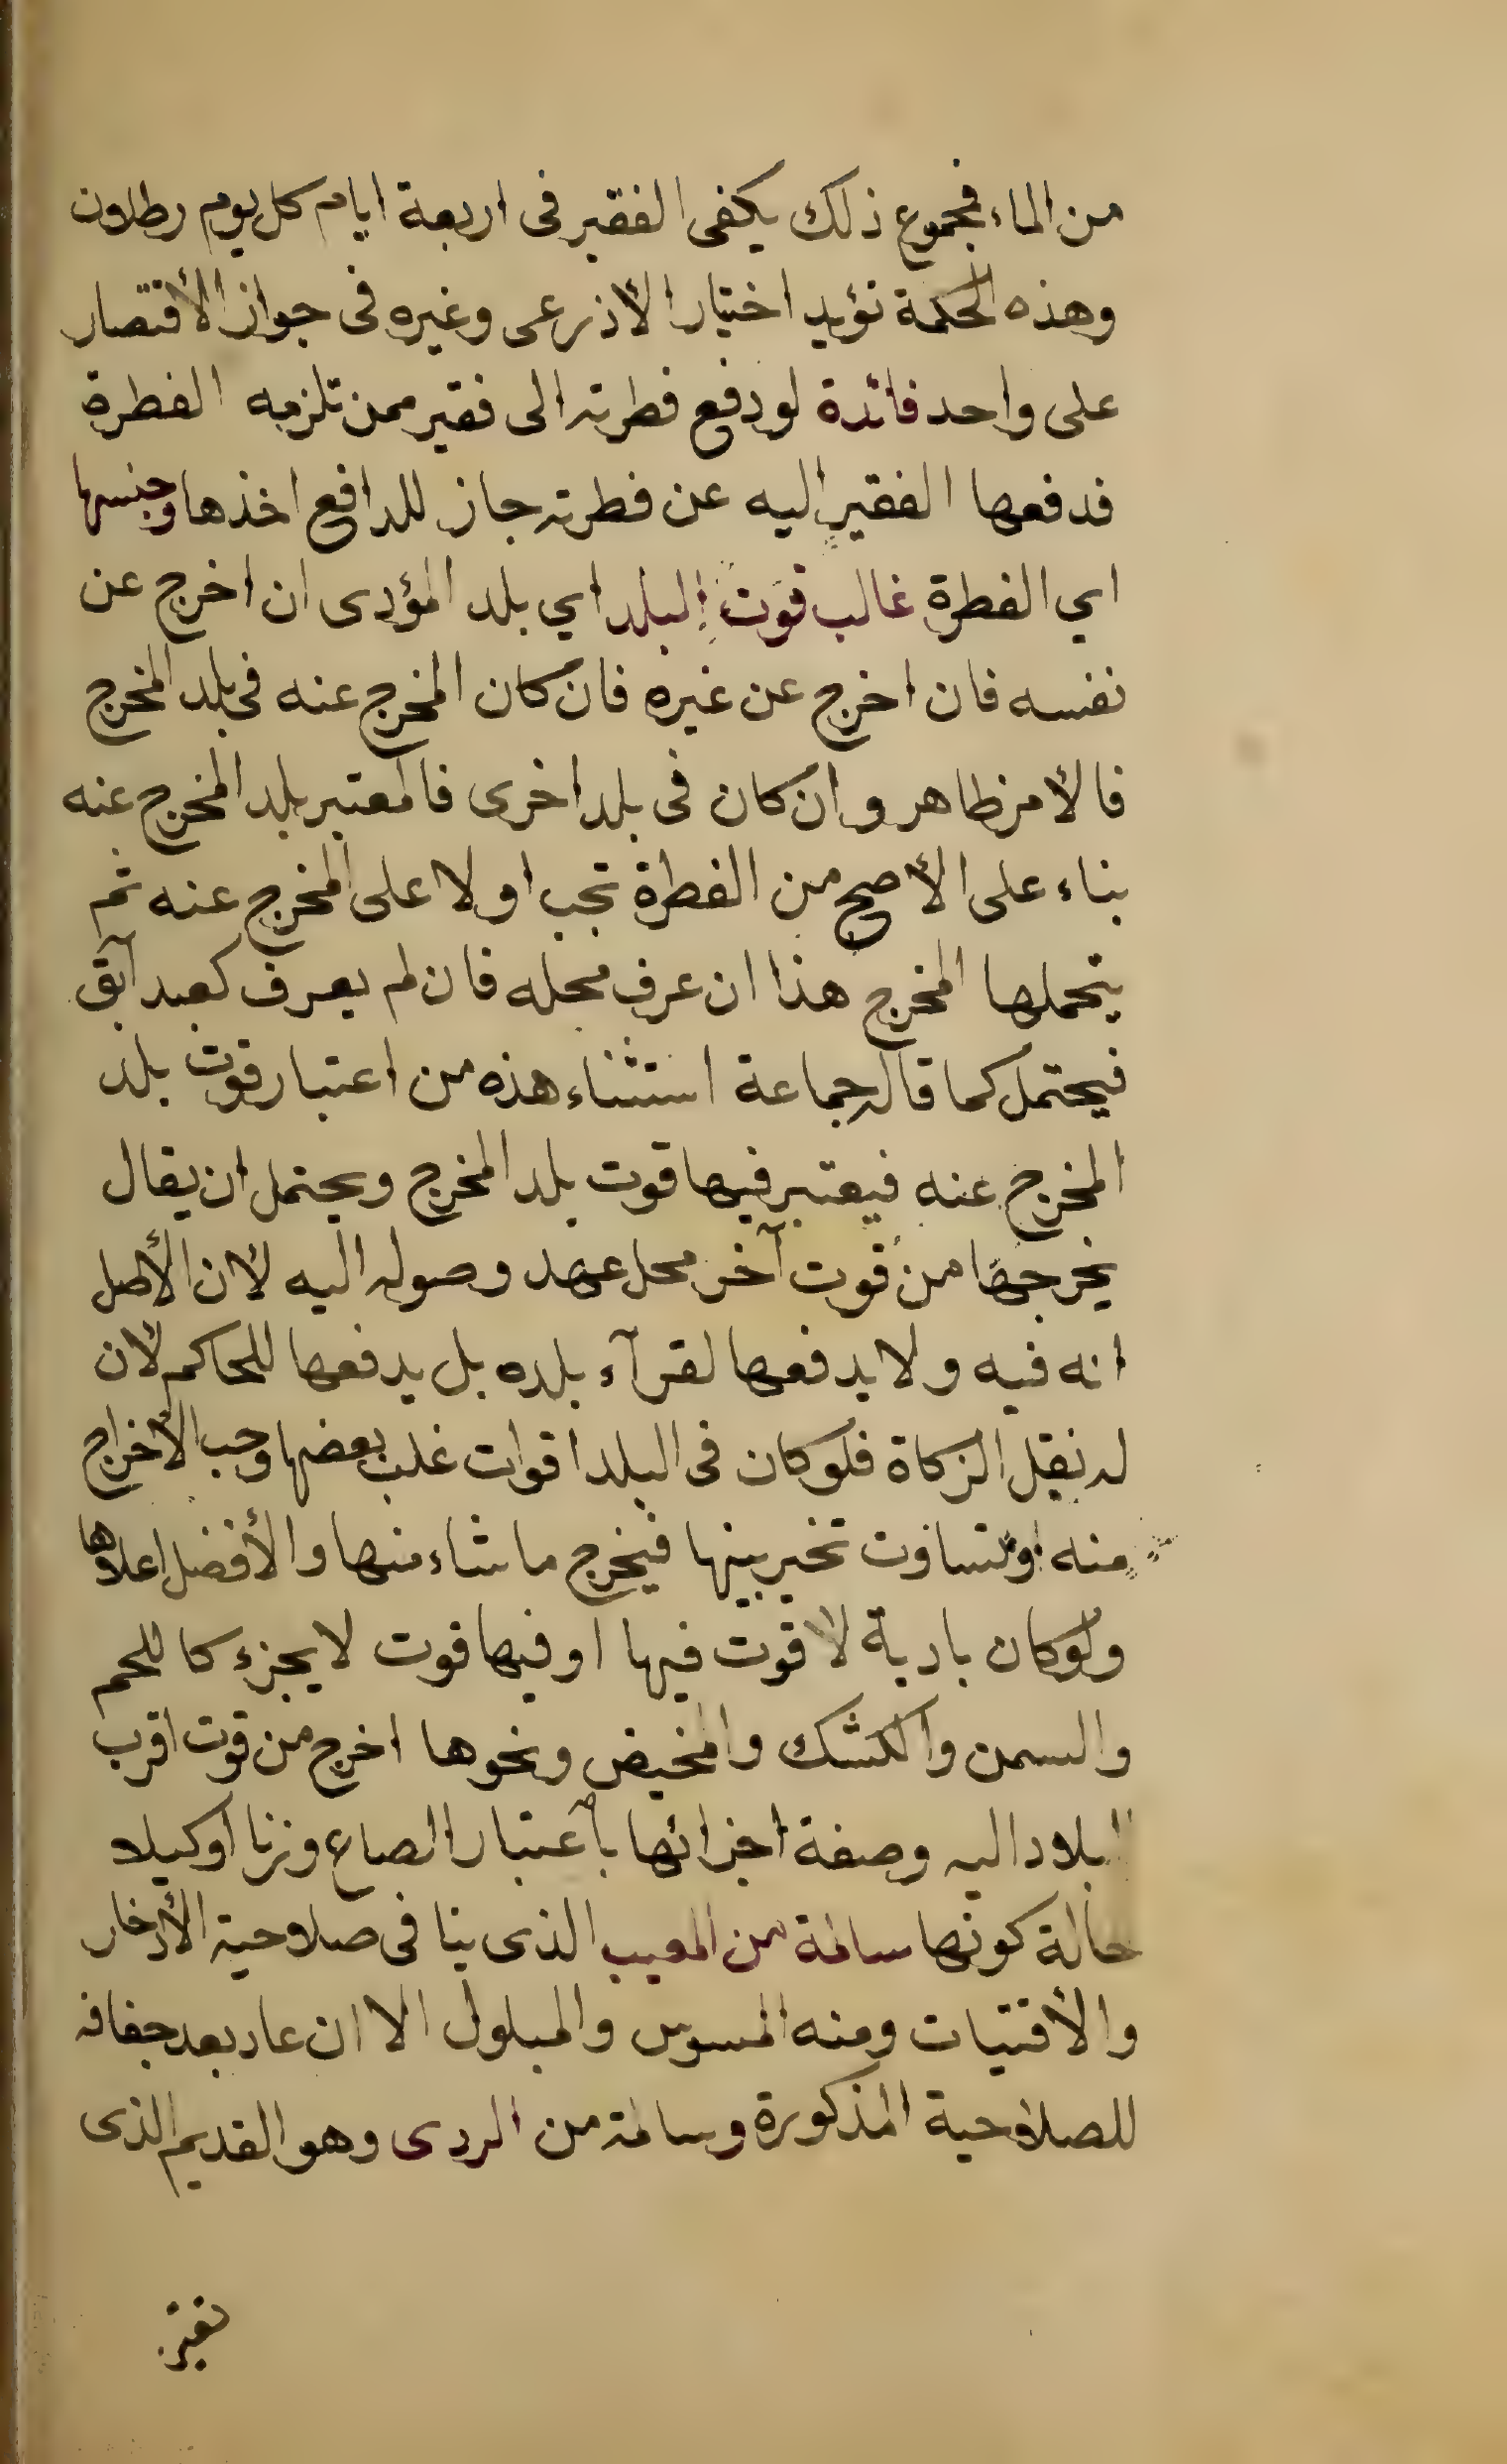 من الماء فمجموع ذلك يكفى الفقير فى اربعة ايام كل يوم رطلان
وهذه الحكمة تؤيد اختيار الأذرعى وغيره فى جواز الأقتصار
على واحد فائدة لو دفع فطرته الى فقير ممن تلزمه الفطرة
فدفعها الفقير اليه عن فطرته جاز للدافع اخذها وجنسها
اي الفطرة غالب قوت البلد اي بلد المؤدى ان اخرج عن
نفسه فان اخرج عن غيره فان كان المخرج عنه فى بلد المخرج
فالأمر ظاهر وان كان فى بلد اخرى فالمعتبر بلد المخرج عنه
بناء على الأصح من الفطرة تجب اولا على المخرج عنه ثم
يتحملها المخرج هذا ان عرف محله فان لم يعرف كعبد آبق
فيحتمل كما قاله جماعة استثناء هذه من اعتبار قوت بلد
المخرج عنه فيعتبر فيها قوت بلد المخرج ويحتمل ان يقال
يخرجها من قوت آخر محل عهد وصوله اليه لأن الأصل
انه فيه ولا يدفعها لفقرآء بلده بل يدفعها للحاكم لأن
له نقل الزكاة فلو كان فى البلد اقوات غلب بعضها وجب الأخراج
منه او تساوت تخير بينها فيخرج ما شاء منها والأفضل اعلاها
ولو كان بادية لا قوت فيها او فيها قوت لا يجزء كاللحم
والسمن والكشك والمخيض ونحوها اخرج من قوت اقرب
البلاد اليه وصفة اجزائها بأعتبار الصاع وزنا او كيلا
حالة كونها سالمة من المعيب الذى ينافى صلاحية الأدخار
والأقتيات ومنه المسوس والمبلول الا ان عاد بعد جفافه
للصلاحية المذكورة وسالمة من الردى وهو القديم الذى
تغير